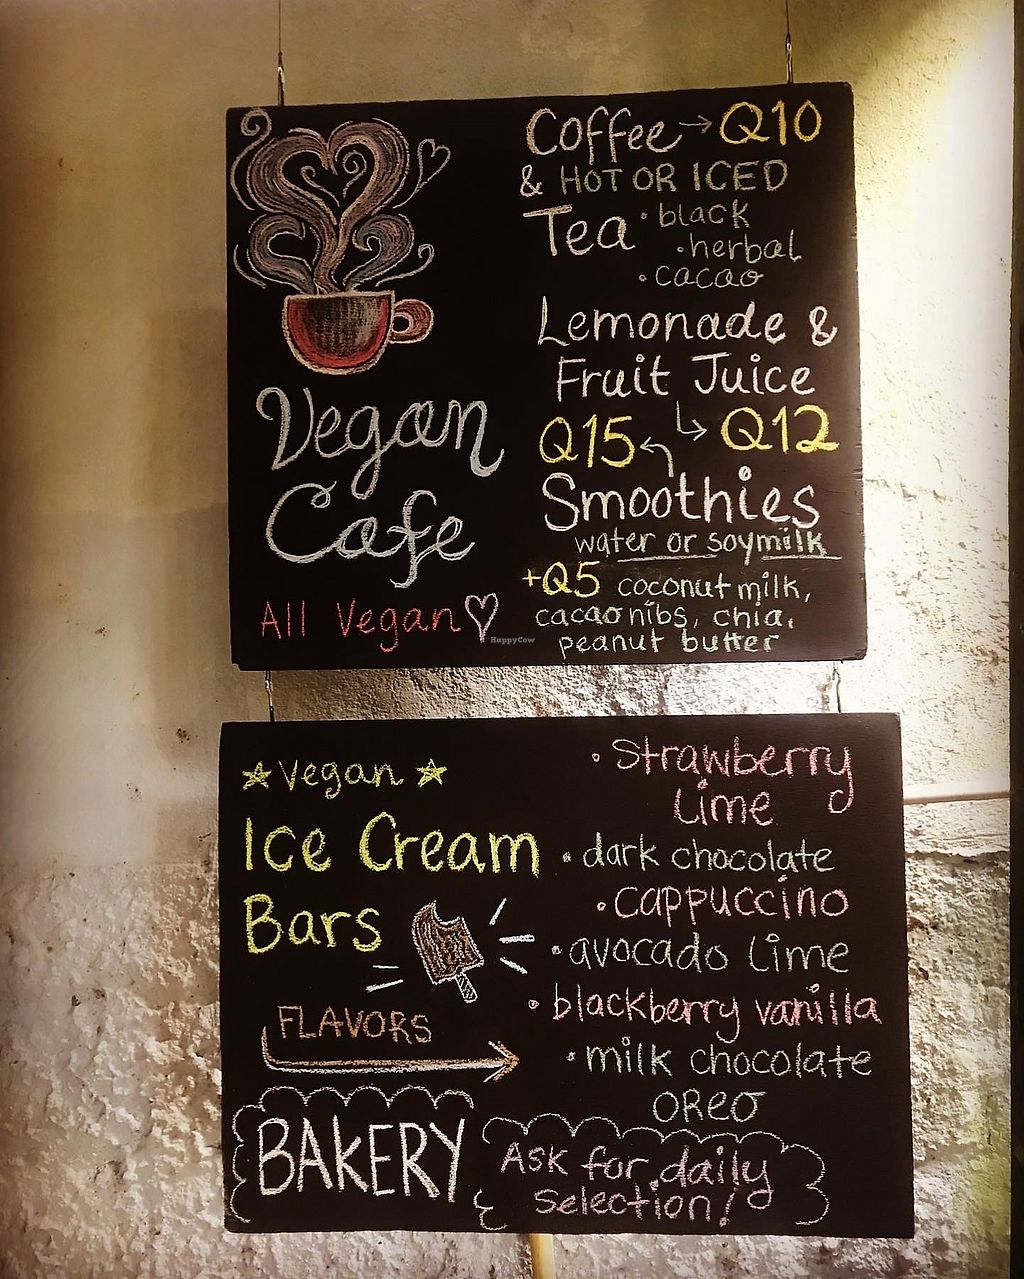 Vegan
Cafe
All Vegan
Coffee → Q10
& HOT OR ICED
Tea • black
• herbal
• cacao
Lemonade &
Fruit Juice
Q15 Q12
Smoothies
water or soymilk
+Q5 coconut milk,
cacao nibs, chia,
peanut butter
HappyCow
Vegan
Ice Cream
Bars
FLAVORS
• Strawberry
Lime
• dark chocolate
• cappuccino
• avocado lime
• blackberry vanilla
• milk chocolate
OREO
BAKERY
Ask for daily
selection!